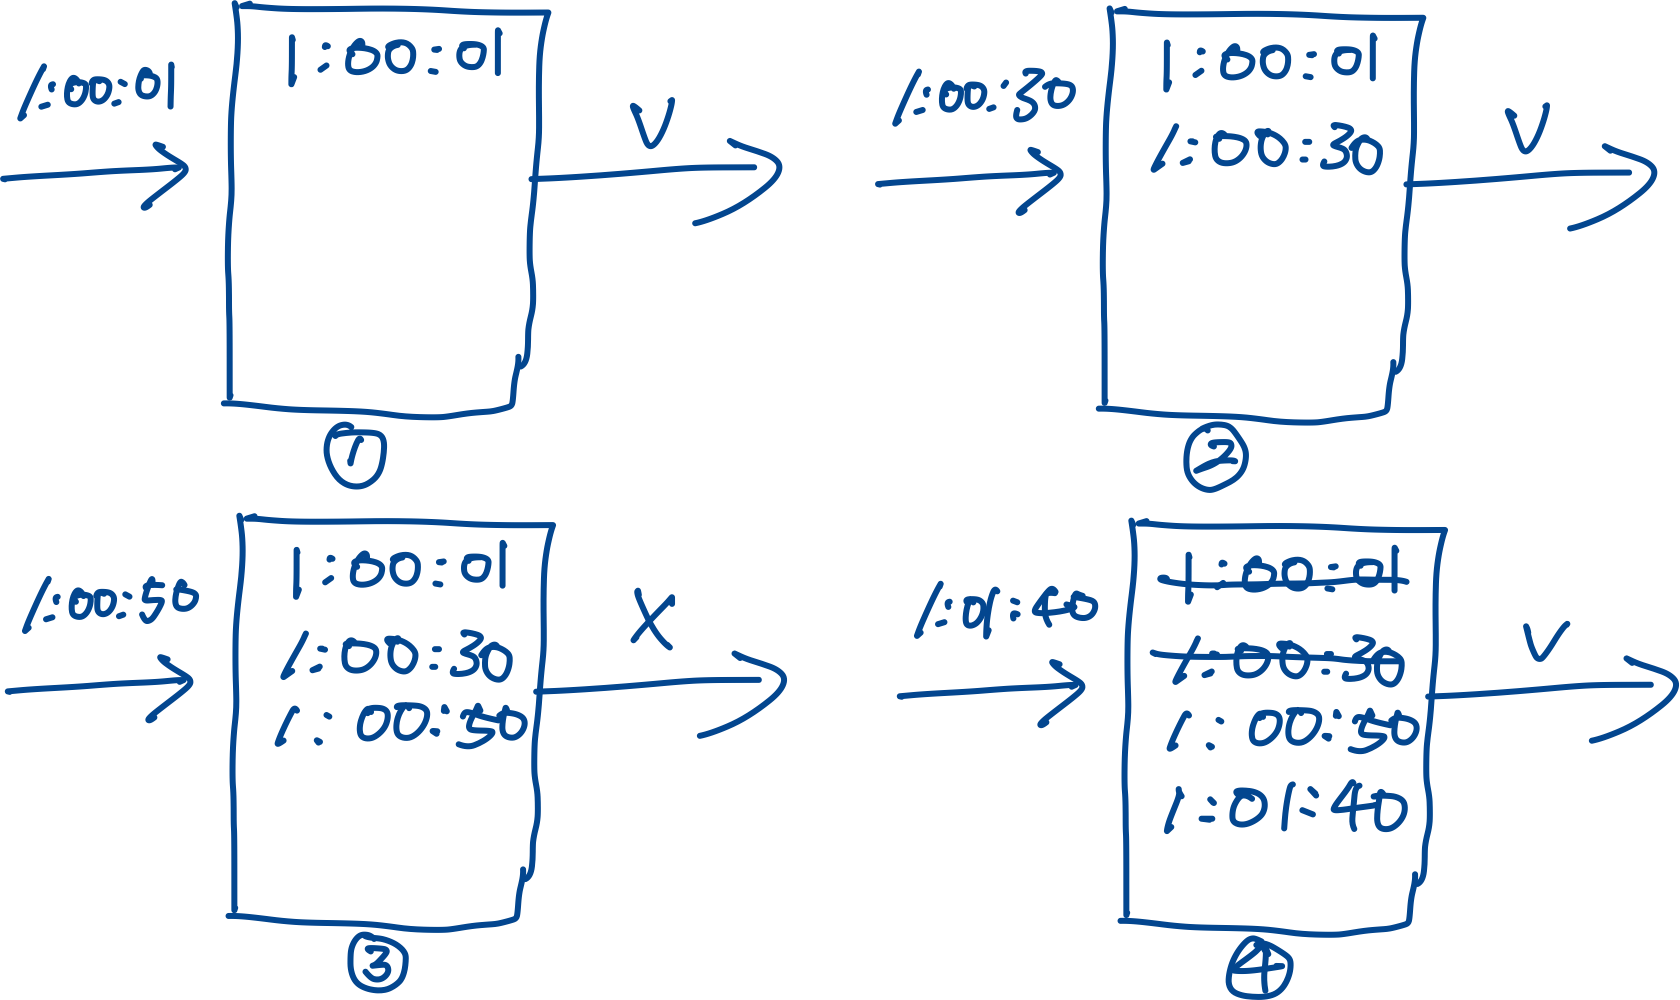 1:00:01
1:00:01
V
1
1:00:30
1:00:01
1:00:30
V
2
1:00:50
1:00:01
1:00:30
1:00:50
X
3
1:01:40
1:00:01
1:00:30
1:00:50
1:01:40
V
4